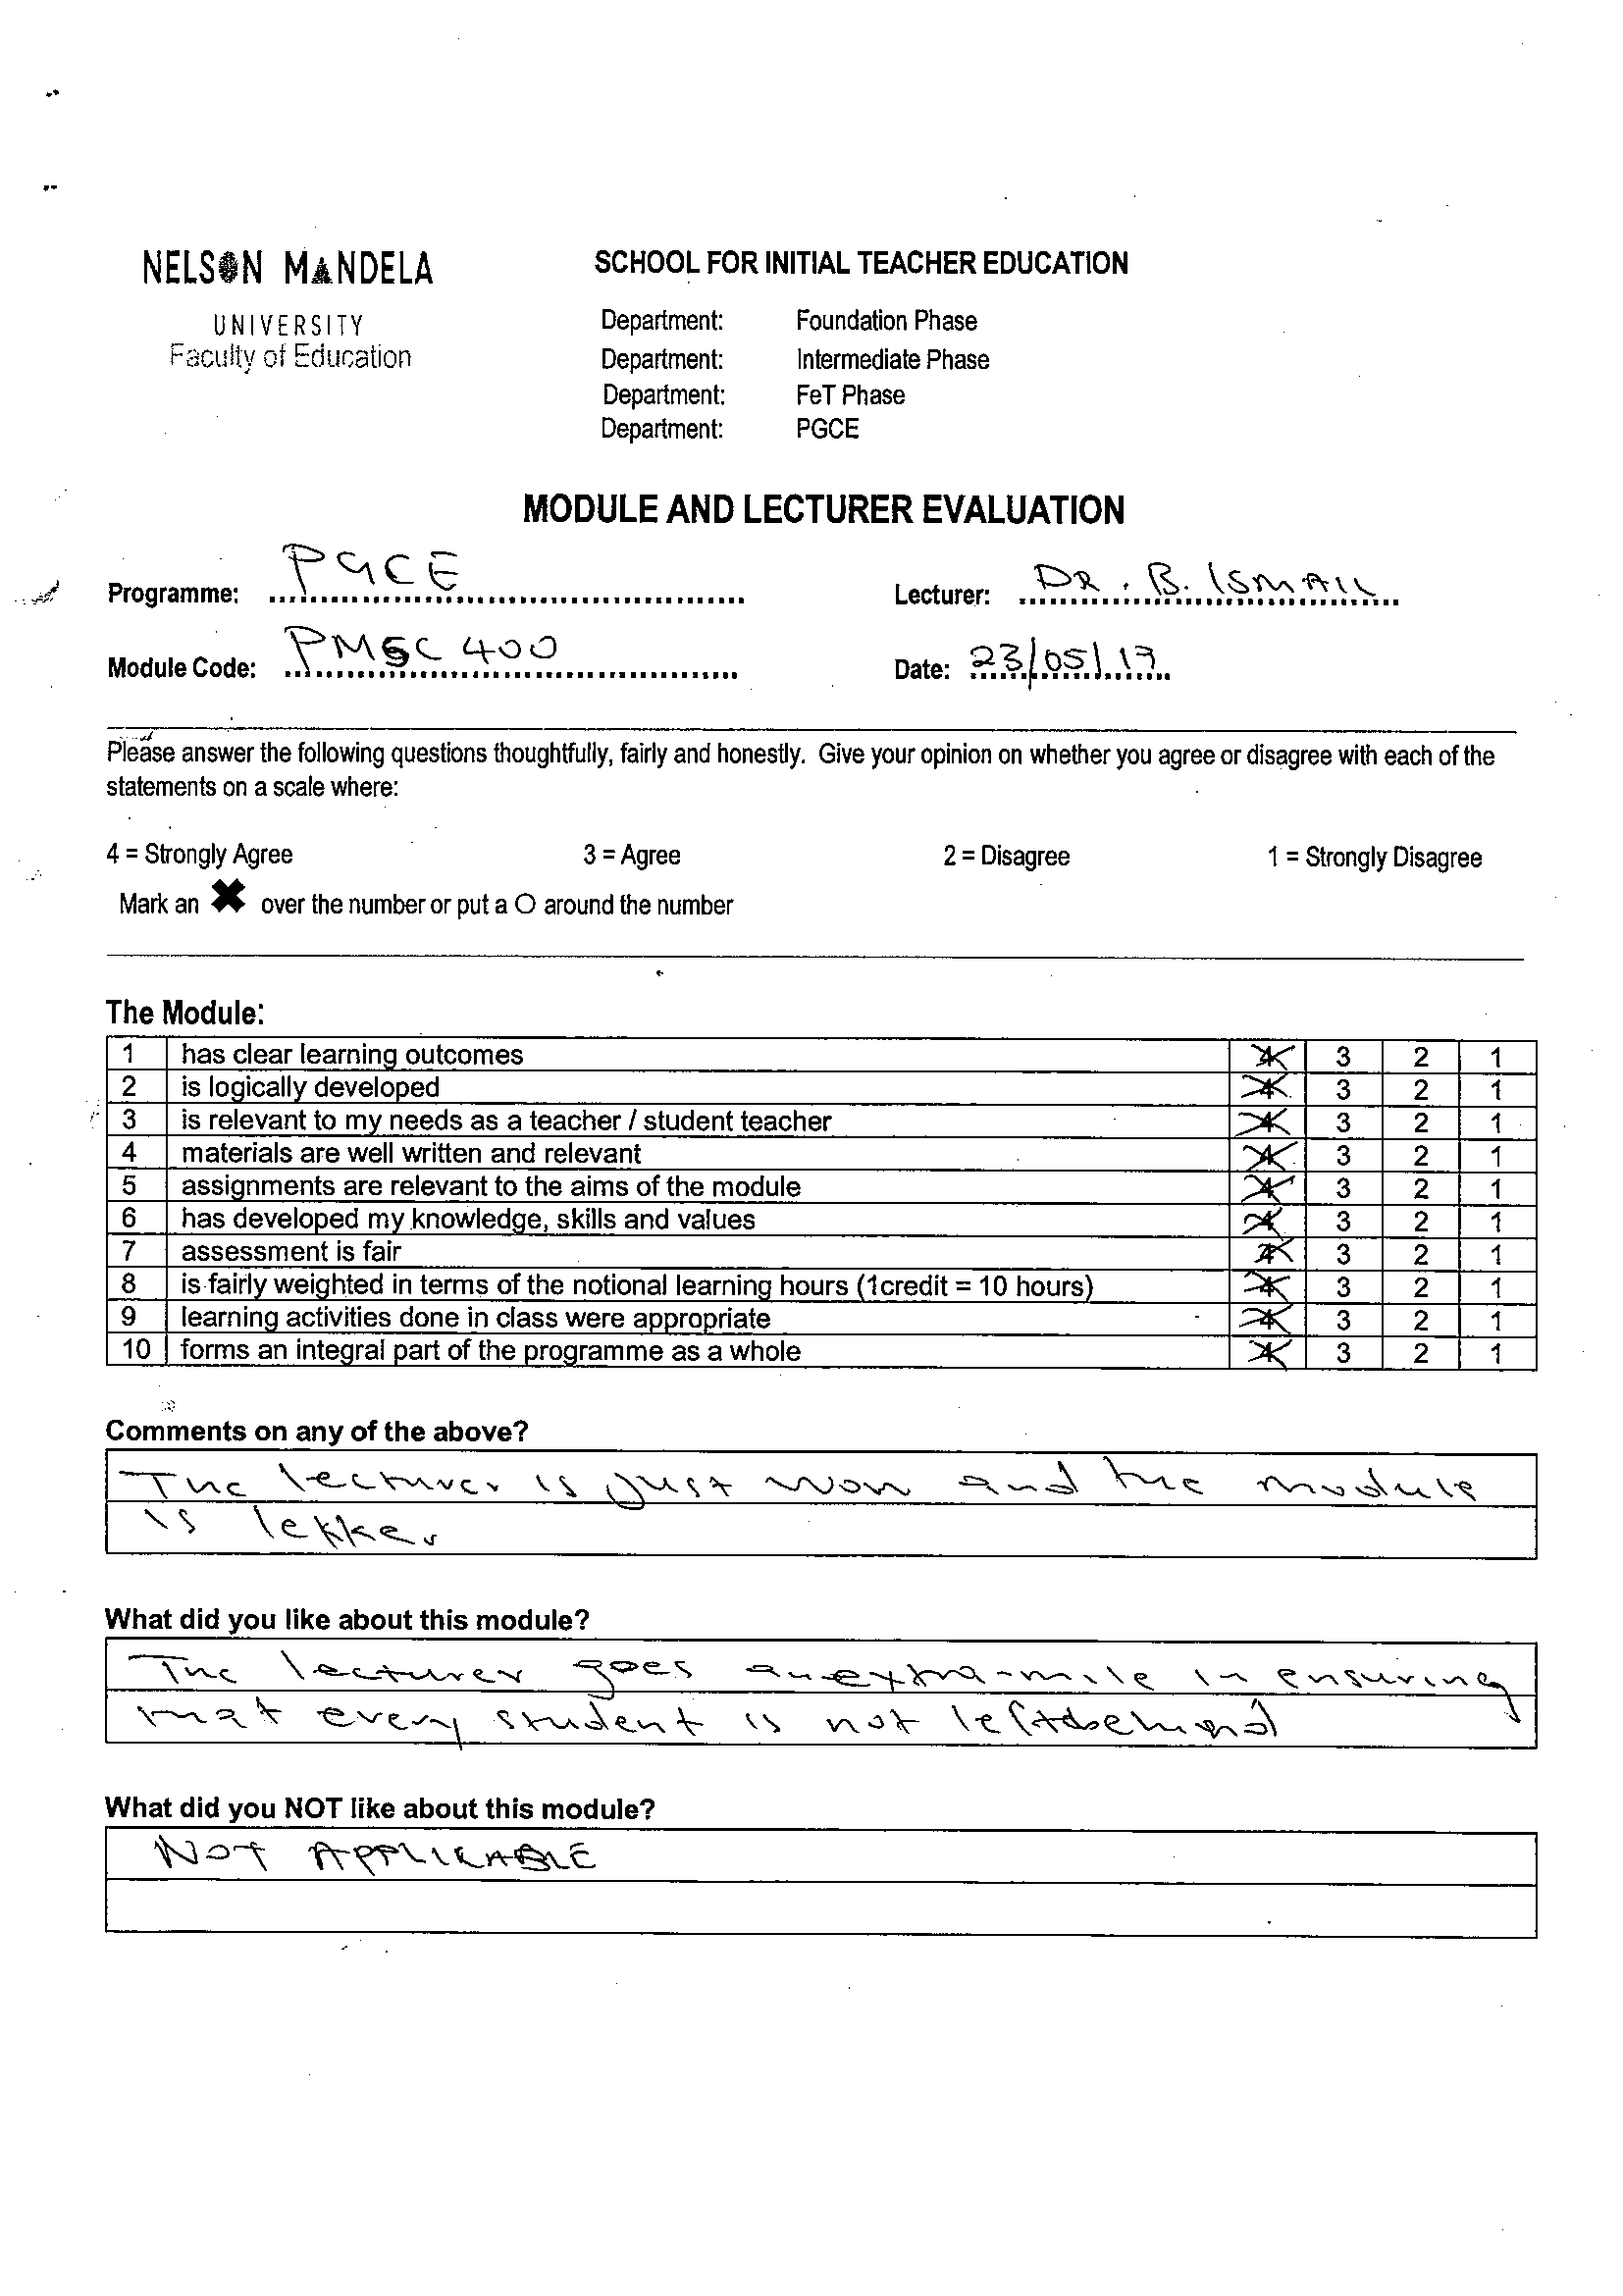 NELSON MANDELA
UNIVERSITY
Faculty of Education
SCHOOL FOR INITIAL TEACHER EDUCATION
Department: Foundation Phase
Department: Intermediate Phase
Department: FeT Phase
Department: PGCE
MODULE AND LECTURER EVALUATION
Programme: PGCE
Lecturer: DR. B. ISMAIL
Module Code: PMSC 400
Date: 23/05/19
Please answer the following questions thoughtfully, fairly and honestly. Give your opinion on whether you agree or disagree with each of the
statements on a scale where:
4 = Strongly Agree 3 = Agree 2 = Disagree 1 = Strongly Disagree
Mark an ✖ over the number or put a O around the number
The Module:
1 has clear learning outcomes 4 3 2 1
2 is logically developed 4 3 2 1
3 is relevant to my needs as a teacher / student teacher 4 3 2 1
4 materials are well written and relevant 4 3 2 1
5 assignments are relevant to the aims of the module 4 3 2 1
6 has developed my knowledge, skills and values 4 3 2 1
7 assessment is fair 4 3 2 1
8 is fairly weighted in terms of the notional learning hours (1credit = 10 hours) 4 3 2 1
9 learning activities done in class were appropriate 4 3 2 1
10 forms an integral part of the programme as a whole 4 3 2 1
Comments on any of the above?
The lecturer is just wow and the module
is lekker
What did you like about this module?
The lecturer goes an extra-mile in ensuring
that every student is not left behind
What did you NOT like about this module?
NOT APPLICABLE